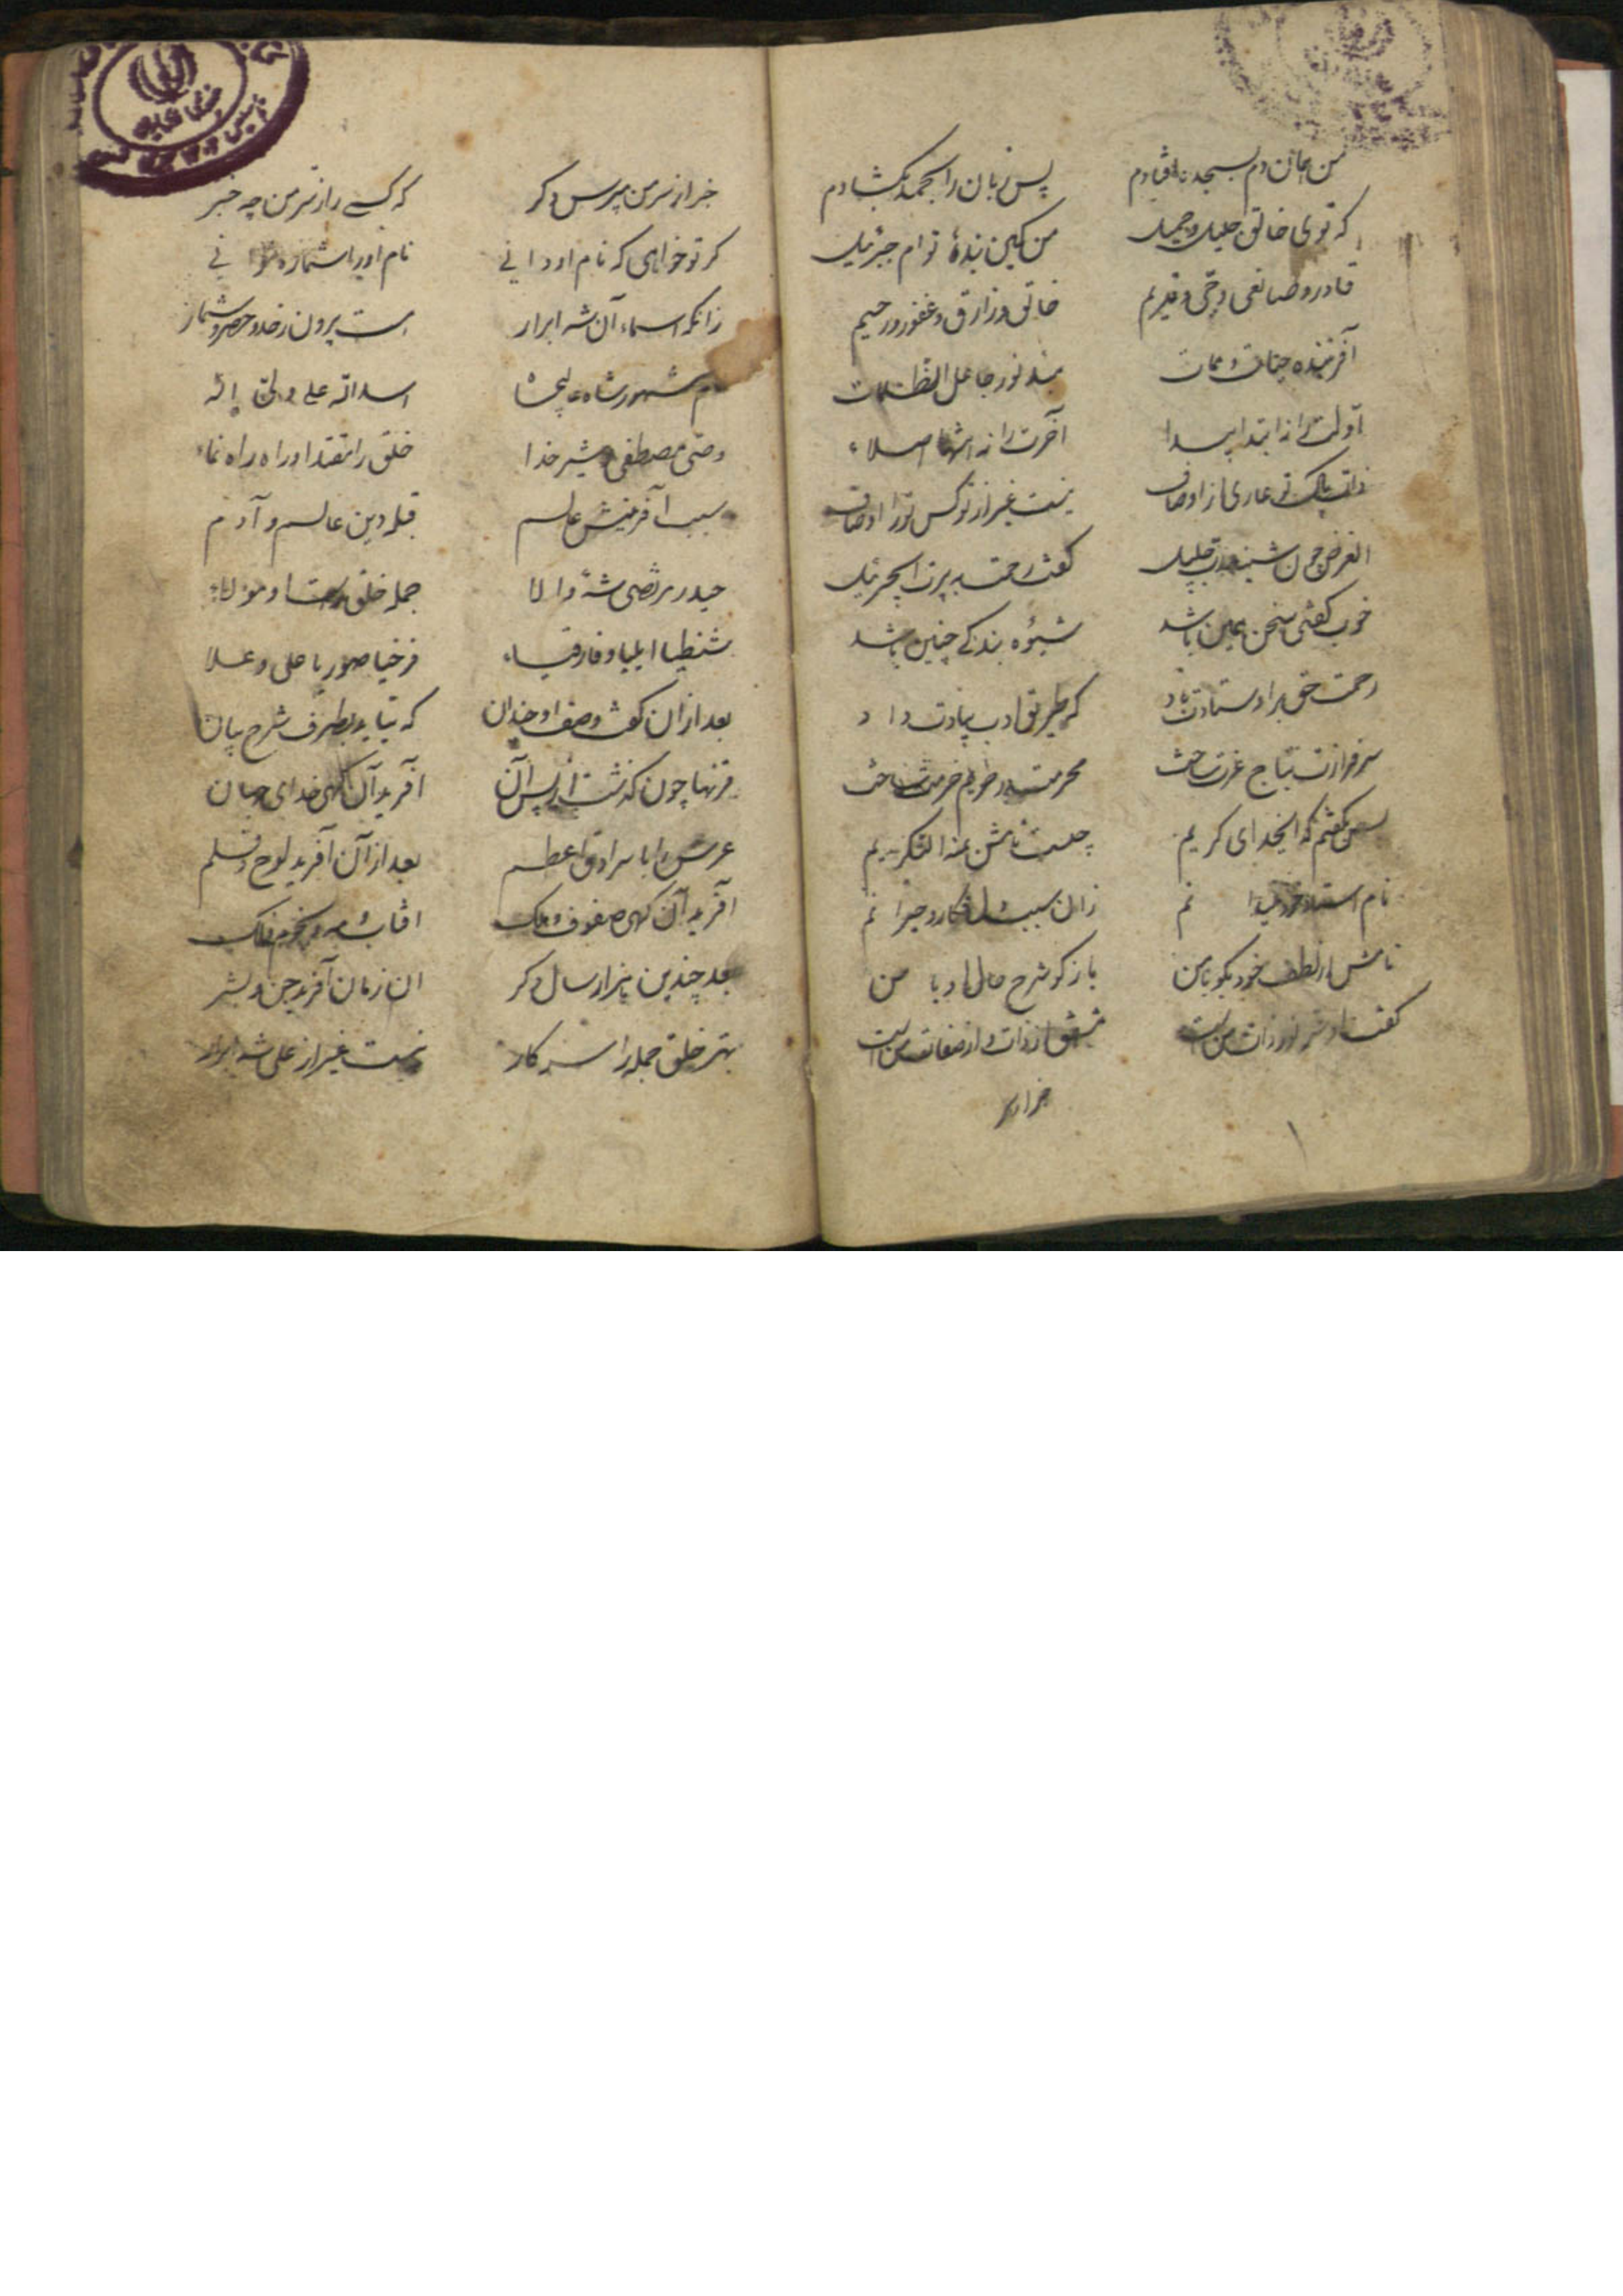 من همان دم بسجده افتادم پس زبان را بحمد بکشادم
که توی خالق جلیل و جمیل من کمین بندهٔ توام جبرئیل
قادر و صانعی و حی و قدیم خالق و رازق و غفور و رحیم
آفریننده حیات و ممات مبدع نور جاعل الظلمات
اولت را نه ابتدا پیدا آخرت را نه انتها اصلاء
ذات پاک تو عاری از اوصاف نیست غیر از تو کس ترا وصاف
الغرض چون شنید رب جلیل گفت رحمت برت ای جبرئیل
خوب گفتی سخن همین باشد شیوهٔ بندگی چنین باشد
رحمت حق بر اوستادت باد که طریق ادب بیادت داد
سرفرازت بتاج عزت ساخت محرمت در حریم حرمت ساخت
پس بگفتم که ایخدای کریم چیست نامش علیه التکریم
نام استاد خود نمیدانم زان سبب دل فکار و حیرانم
نامش از لطف خود بگو با من باز گو شرح حال او با من
گفت او سر نور ذات من است مشتق از ذات و از صفات من است
خبر از سر
خبر از سر من مپرس دگر که کسے را ز سر من چه خبر
گر تو خواهی که نام او دانے نام او را شماره نتوانے
زانکه اسماء آن شه ابرار است بیرون ز حد و حصر و شمار
نام مشهور شاه عالیجاه اسد الله علے ولی اله
وصی مصطفی و شیر خدا خلق را مقتدا و راه نماء
سبب آفرینش عالم قبله دین عالم و آدم
حیدر مرتضی شه والا جمله خلق راست او مولاء
شنطیا ایلیا و فارقیاء فرخیا صهوریا علی و علا
بعد از آن گفت وصف او چندان که نیاید بطرف شرح بیان
قرنها چون گذشت از پس آن آفرید آن گهی خدای جهان
عرش را با سرادق اعظم بعد از آن آفرید لوح و قلم
آفرید آن گهی صفوف ملک آفتاب و مه و نجوم و فلک
بعد چندین هزار سال دگر ان زمان آفرید جن و بشر
بهتر خلق جمله را سر کار نیست غیر از علی شه ابرار